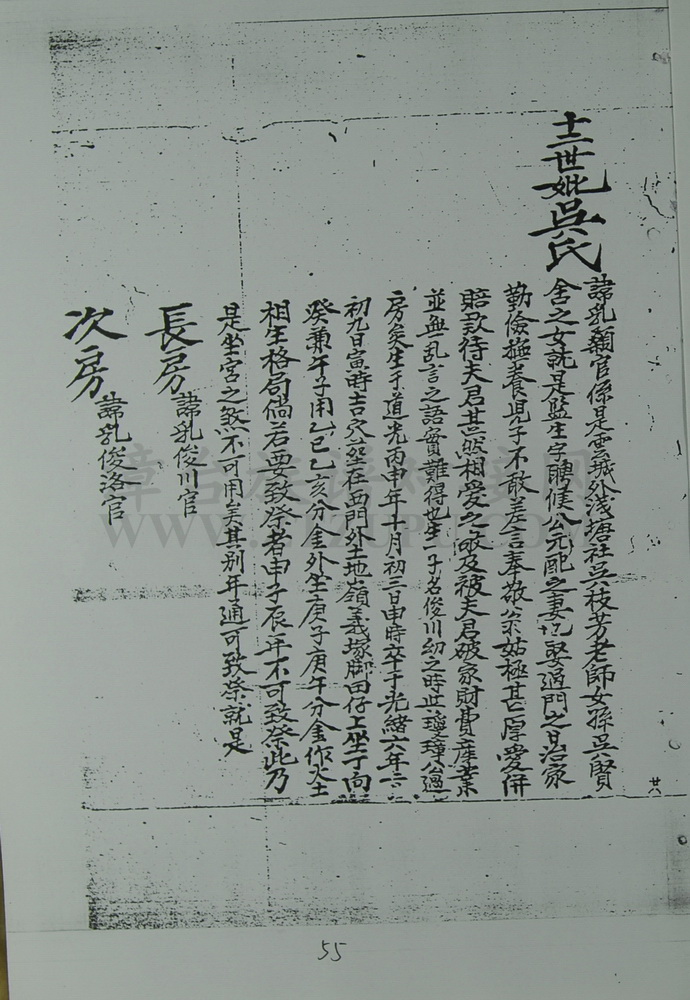 十二世妣吳氏
諱乳額官係是雲城外浅塘社吳枝芳老師女孫吳賢
舍之女就是監生字聘候公元配之妻也娶過門之日治家
勤儉撫養兒子不敢差言奉敬翁姑極其厚愛併
賠款待夫君甚然相愛之敬及被夫君破家財費産業
並無乱言之語實難得也生一子名俊川幼之時此璋公過
房矣生于道光丙申年十月初三日申時卒于光緒六年二
初九日寅時吉穴葬在西門外土地嶺義塚脚田仔上坐丁向
癸兼午子用乙巳乙亥分金外坐庚子庚午分金作火土
相生格局倘若要致祭者申子辰年不可致祭此乃
是坐宮之煞不可用矣其别年通可致祭就是
長房諱乳俊川官
次房諱乳俊洛官
廿八
55
章台族谱对接网